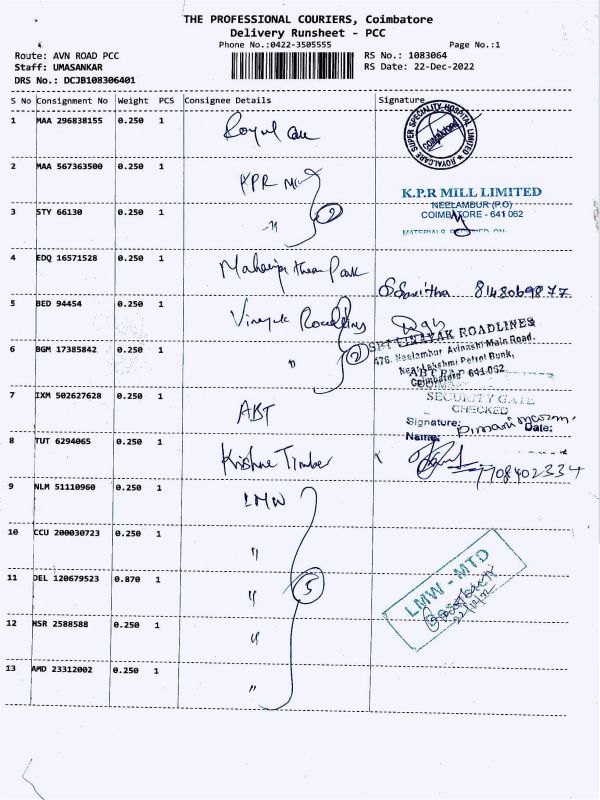 THE PROFESSIONAL COURIERS, Coimbatore
Delivery Runsheet - PCC
Phone No.:0422-3505555 Page No.:1
Route: AVN ROAD PCC RS No.: 1083064
Staff: UMASANKAR RS Date: 22-Dec-2022
DRS No.: DCJB108306401
S No Consignment No Weight PCS Consignee Details Signature
1 MAA 296838155 0.250 1 Royal Care
ROYALCARE SUPER SPECIALITY HOSPITAL LIMITED
COIMBATORE
2 MAA 567363500 0.250 1 KPR Mill
K.P.R MILL LIMITED
NEELAMBUR (P.O)
3 STY 66130 0.250 1 -"- 2 COIMBATORE - 641 062
4 EDQ 16571528 0.250 1 Park
8148069877
5 BED 94454 0.250 1 Vinayak Roadlines
SRI VINAYAK ROADLINES
6 BGM 17385842 0.250 1 " 2 476, Neelambur Avinashi Main Road,
Near Lakshmi Petrol Bunk,
Coimbatore 641 062
7 IXM 502627628 0.250 1 ABT
SECURITY GATE
CHECKED
Signature:
Name: Date:
8 TUT 6294065 0.250 1 Krishna Timber
7708402334
9 NLM 51110960 0.250 1 LMW
10 CCU 200030723 0.250 1 "
11 DEL 120679523 0.870 1 " 5
LMW - MTD
22/12/22
12 NSR 2588588 0.250 1 "
13 AMD 23312002 0.250 1 "